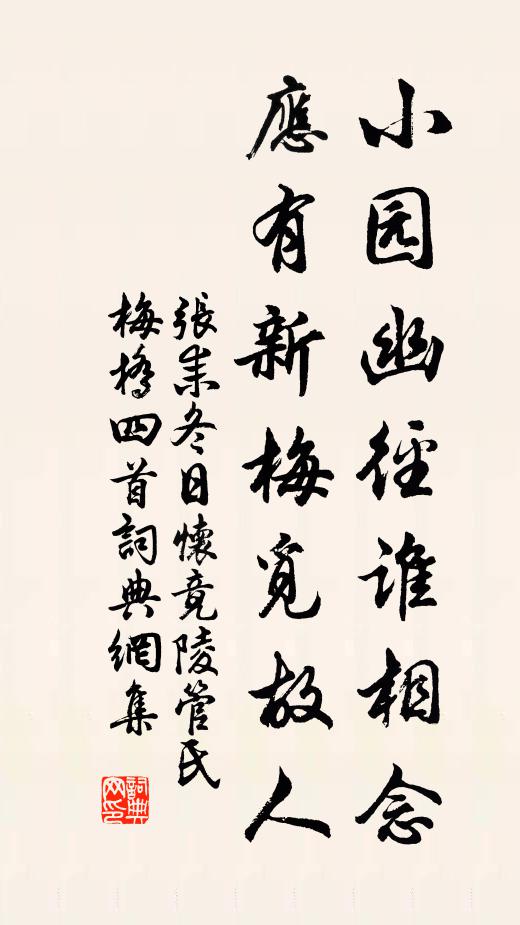 小园幽徑谁相念
應有新梅觅故人
張耒冬日懷竟陵管民
梅橋四首詞典網集
詞典
网印